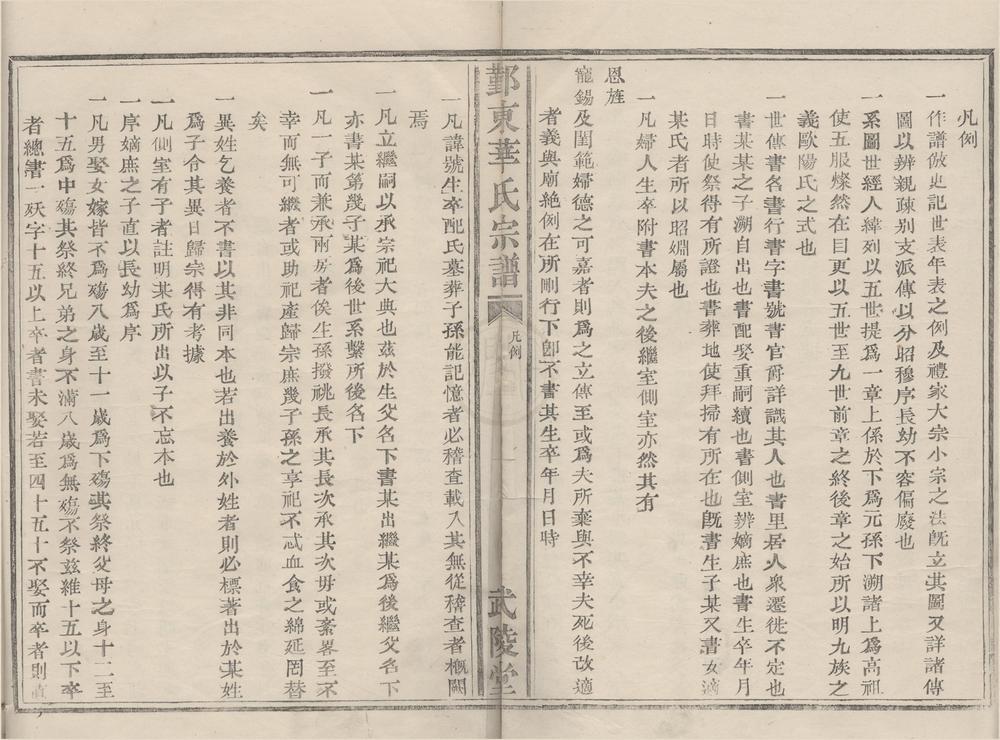 凡例
一作譜倣史記世表年表之例及禮家大宗小宗之法旣立其圖又詳諸傳
圖以辨親疎别支派傳以分昭穆序長幼不容偏廢也
一系圖世經人緯列以五世提爲一章上係於下爲元孫下溯諸上爲高祖
使五服燦然在目更以五世至九世前章之終後章之始所以明九族之
義歐陽氏之式也
一世傳書名書行書字書號書官爵詳識其人也書里居人衆遷徙不定也
書某某之子溯自出也書配娶重嗣續也書側室辨嫡庶也書生卒年月
日時使祭得有所證也書葬地使拜掃有所在也旣書生子某又書女適
某氏者所以昭婣屬也
一凡婦人生卒附書本夫之後繼室側室亦然其有
恩旌
寵錫及閨範婦德之可嘉者則爲之立傳至或爲夫所棄與不幸夫死後改適
者義與廟絶例在所刪行下卽不書其生卒年月日時
鄞東華氏宗譜
凡例
一
武陵堂
一凡諱號生卒配氏墓葬子孫能記憶者必稽查載入其無從稽查者概闕
焉
一凡立繼嗣以承宗祀大典也茲於生父名下書某出繼某爲後繼父名下
亦書某第幾子某爲後世系繫所後名下
一凡一子而兼承兩房者俟生孫撥祧長承其長次承其次毋或紊畧至不
幸而無可繼者或助祀產歸宗庶幾子孫之享祀不忒血食之綿延罔替
矣
一異姓乞養者不書以其非同本也若出養於外姓者則必標著出於某姓
爲子令其異日歸宗得有考據
一凡側室有子者註明某氏所出以子不忘本也
一序嫡庶之子直以長幼爲序
一凡男娶女嫁皆不爲殤八歲至十一歲爲下殤其祭終父母之身十二至
十五爲中殤其祭終兄弟之身不滿八歲爲無殤不祭茲維十五以下卒
者總書一殀字十五以上卒者書未娶若至四十五十不娶而卒者則直